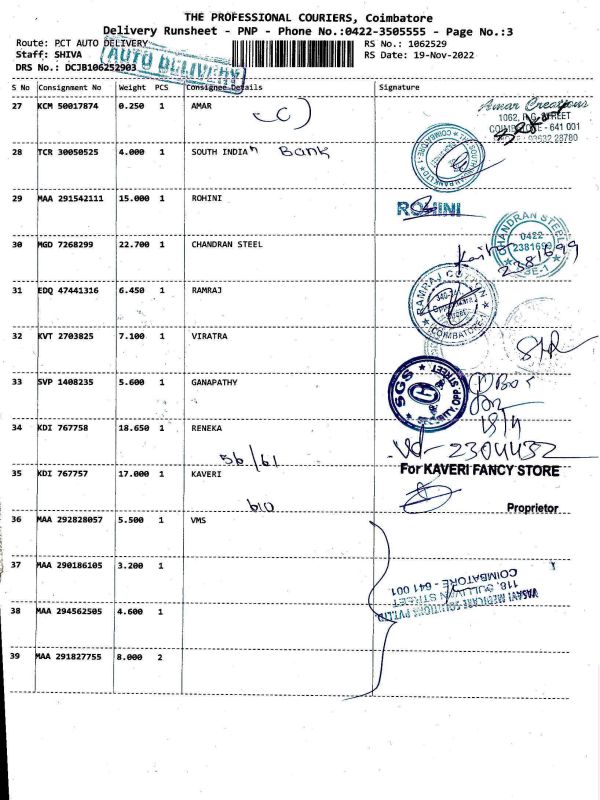 THE PROFESSIONAL COURIERS, Coimbatore
Delivery Runsheet - PNP - Phone No.:0422-3505555 - Page No.:3
Route: PCT AUTO DELIVERY
RS No.: 1062529
Staff: SHIVA
RS Date: 19-Nov-2022
DRS No.: DCJB106252903
AUTO DELIVERY
S No Consignment No Weight PCS Consignee Details Signature
27 KCM 50017874 0.250 1 AMAR
Amar Creations
COIMBATORE - 641 001
28 TCR 30050525 4.000 1 SOUTH INDIAn Bank
29 MAA 291542111 15.000 1 ROHINI
ROHINI
30 MGD 7268299 22.700 1 CHANDRAN STEEL
CHANDRAN STEEL
0422
2381699
2381699
31 EDQ 47441316 6.450 1 RAMRAJ
RAMRAJ COTTON
COIMBATORE-1
32 KVT 2703825 7.100 1 VIRATRA
33 SVP 1408235 5.600 1 GANAPATHY
SGS
SECURITY, OPP. STREET
34 KDI 767758 18.650 1 RENEKA
56/61
2304432
35 KDI 767757 17.000 1 KAVERI
For KAVERI FANCY STORE
b10
Proprietor
36 MAA 292828057 5.500 1 VMS
37 MAA 290186105 3.200 1
VASAVI MEDICARE SOLUTIONS PVT.LTD
116, SULLIVAN STREET
COIMBATORE - 641 001.
38 MAA 294562505 4.600 1
39 MAA 291827755 8.000 2